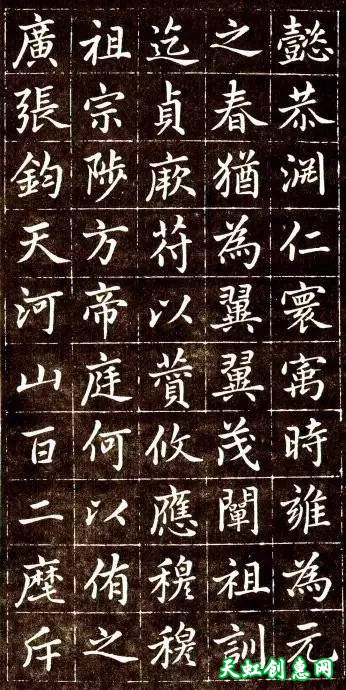 懿恭渊仁寰寓時雍為元
之春猶為翼翼茂闡祖訓
迄貞厥苻以攸應穆穆
祖宗陟方帝庭何以侑之
廣張鈞天河山百二麾斥
天虹创意网